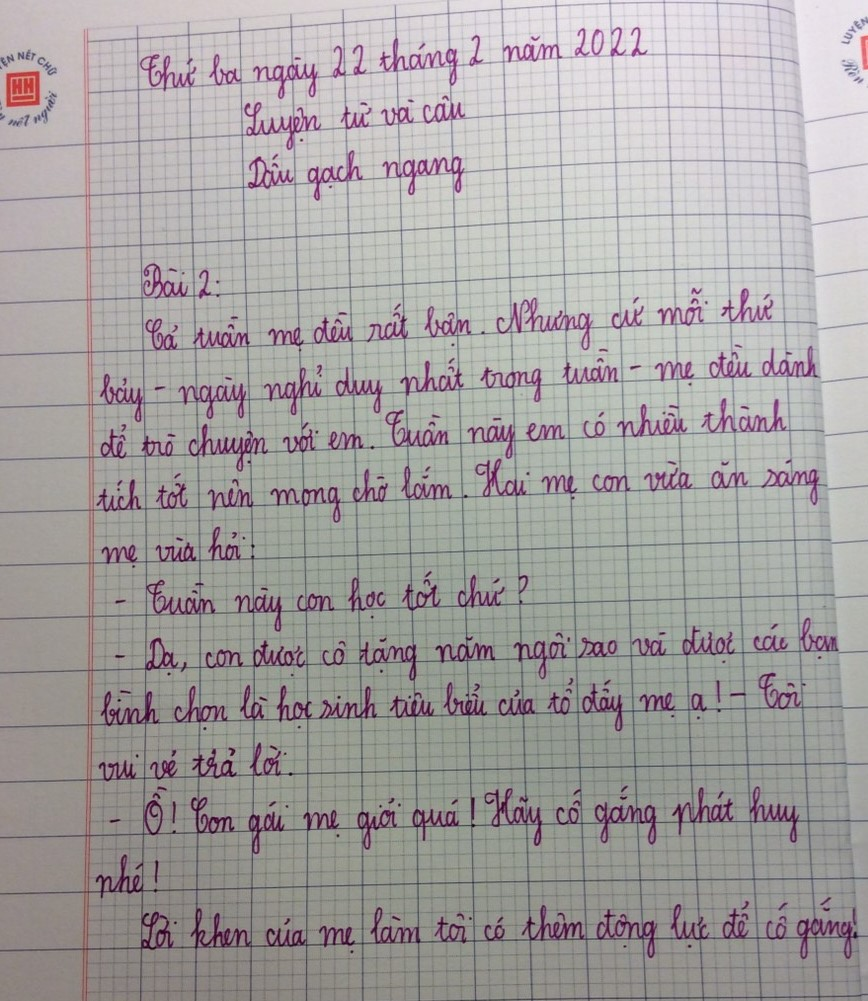 Thứ ba ngày 22 tháng 2 năm 2022
Luyện từ và câu
Dấu gạch ngang
Bài 2:
Cả tuần mẹ đều rất bận. Nhưng cứ mỗi thứ
bảy - ngày nghỉ duy nhất trong tuần - mẹ đều dành
để trò chuyện với em. Tuần này em có nhiều thành
tích tốt nên mong chờ lắm. Hai mẹ con vừa ăn sáng
mẹ vừa hỏi:
- Tuần này con học tốt chứ?
- Dạ, con được cô tặng năm ngôi sao và được các bạn
bình chọn là học sinh tiêu biểu của tổ đấy mẹ ạ! - Tôi
vui vẻ trả lời.
- Ồ! Con gái mẹ giỏi quá! Hãy cố gắng phát huy
nhé!
Lời khen của mẹ làm tôi có thêm động lực để cố gắng!
NẾT CHỮ
HH
nết người
LUYỆN
Rèn